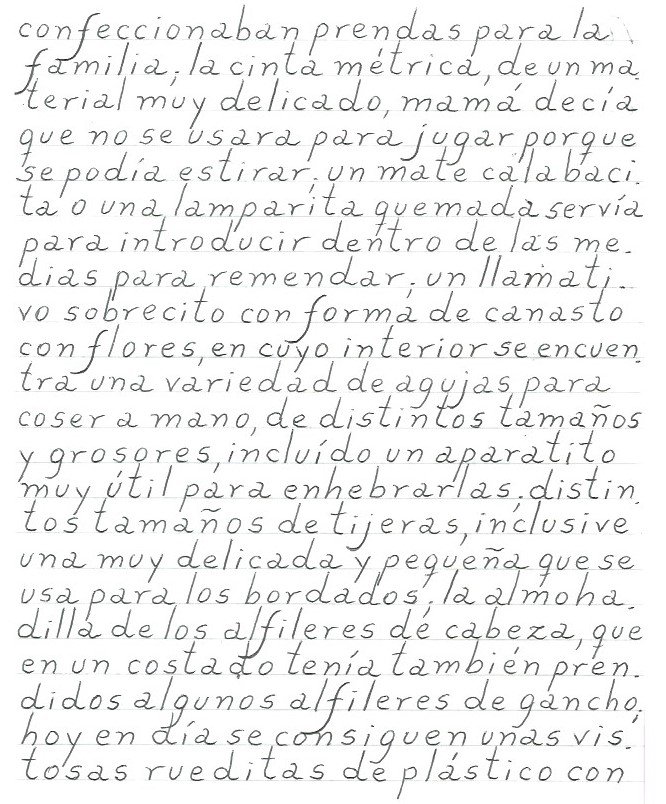 confeccionaban prendas para la
familia; la cinta métrica, de un ma.
terial muy delicado, mamá decía
que no se usara para jugar porque
se podía estirar; un mate calabaci.
ta o una lamparita quemada servía
para introducir dentro de las me.
dias para remendar; un llamati.
vo sobrecito con forma de canasto
con flores, en cuyo interior se encuen.
tra una variedad de agujas para
coser a mano, de distintos tamaños
y grosores, incluído un aparatito
muy útil para enhebrarlas; distin.
tos tamaños de tijeras, inclusive
una muy delicada y pequeña que se
usa para los bordados; la almoha.
dilla de los alfileres de cabeza, que
en un costado tenía también pren.
didos algunos alfileres de gancho;
hoy en día se consiguen unas vis.
tosas rueditas de plástico con